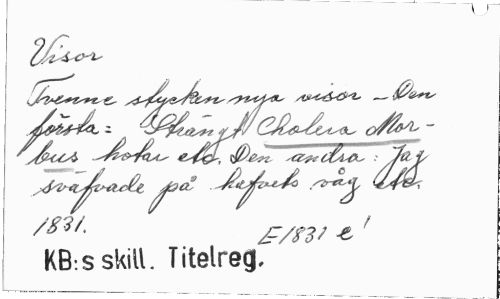 Visor
Tvenne stycken nya visor – Den
första: Strängt Cholera Mor-
bus hotar etc. Den andra: Jag
sväfvade på hafvets våg etc.
1831.
E1831 e!
KB:s skill. Titelreg.